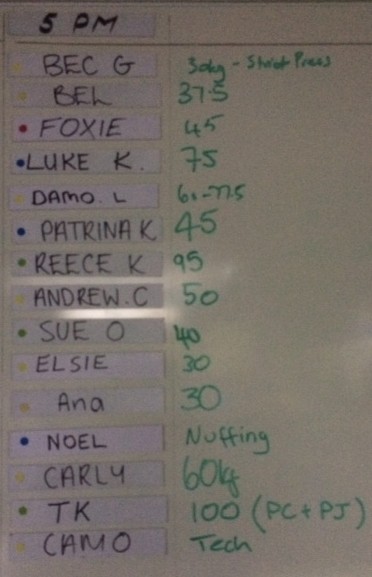 5 PM
BEC G 30kg - Strict Press
BEL 37.5
FOXIE 45
LUKE K. 75
DAMO. L 60-77.5
PATRINA K 45
REECE K 95
ANDREW.C 50
SUE O 40
ELSIE 30
Ana 30
NOEL Nuffing
CARLY 60kg
TK 100 (PC+PJ)
CAMO Tech